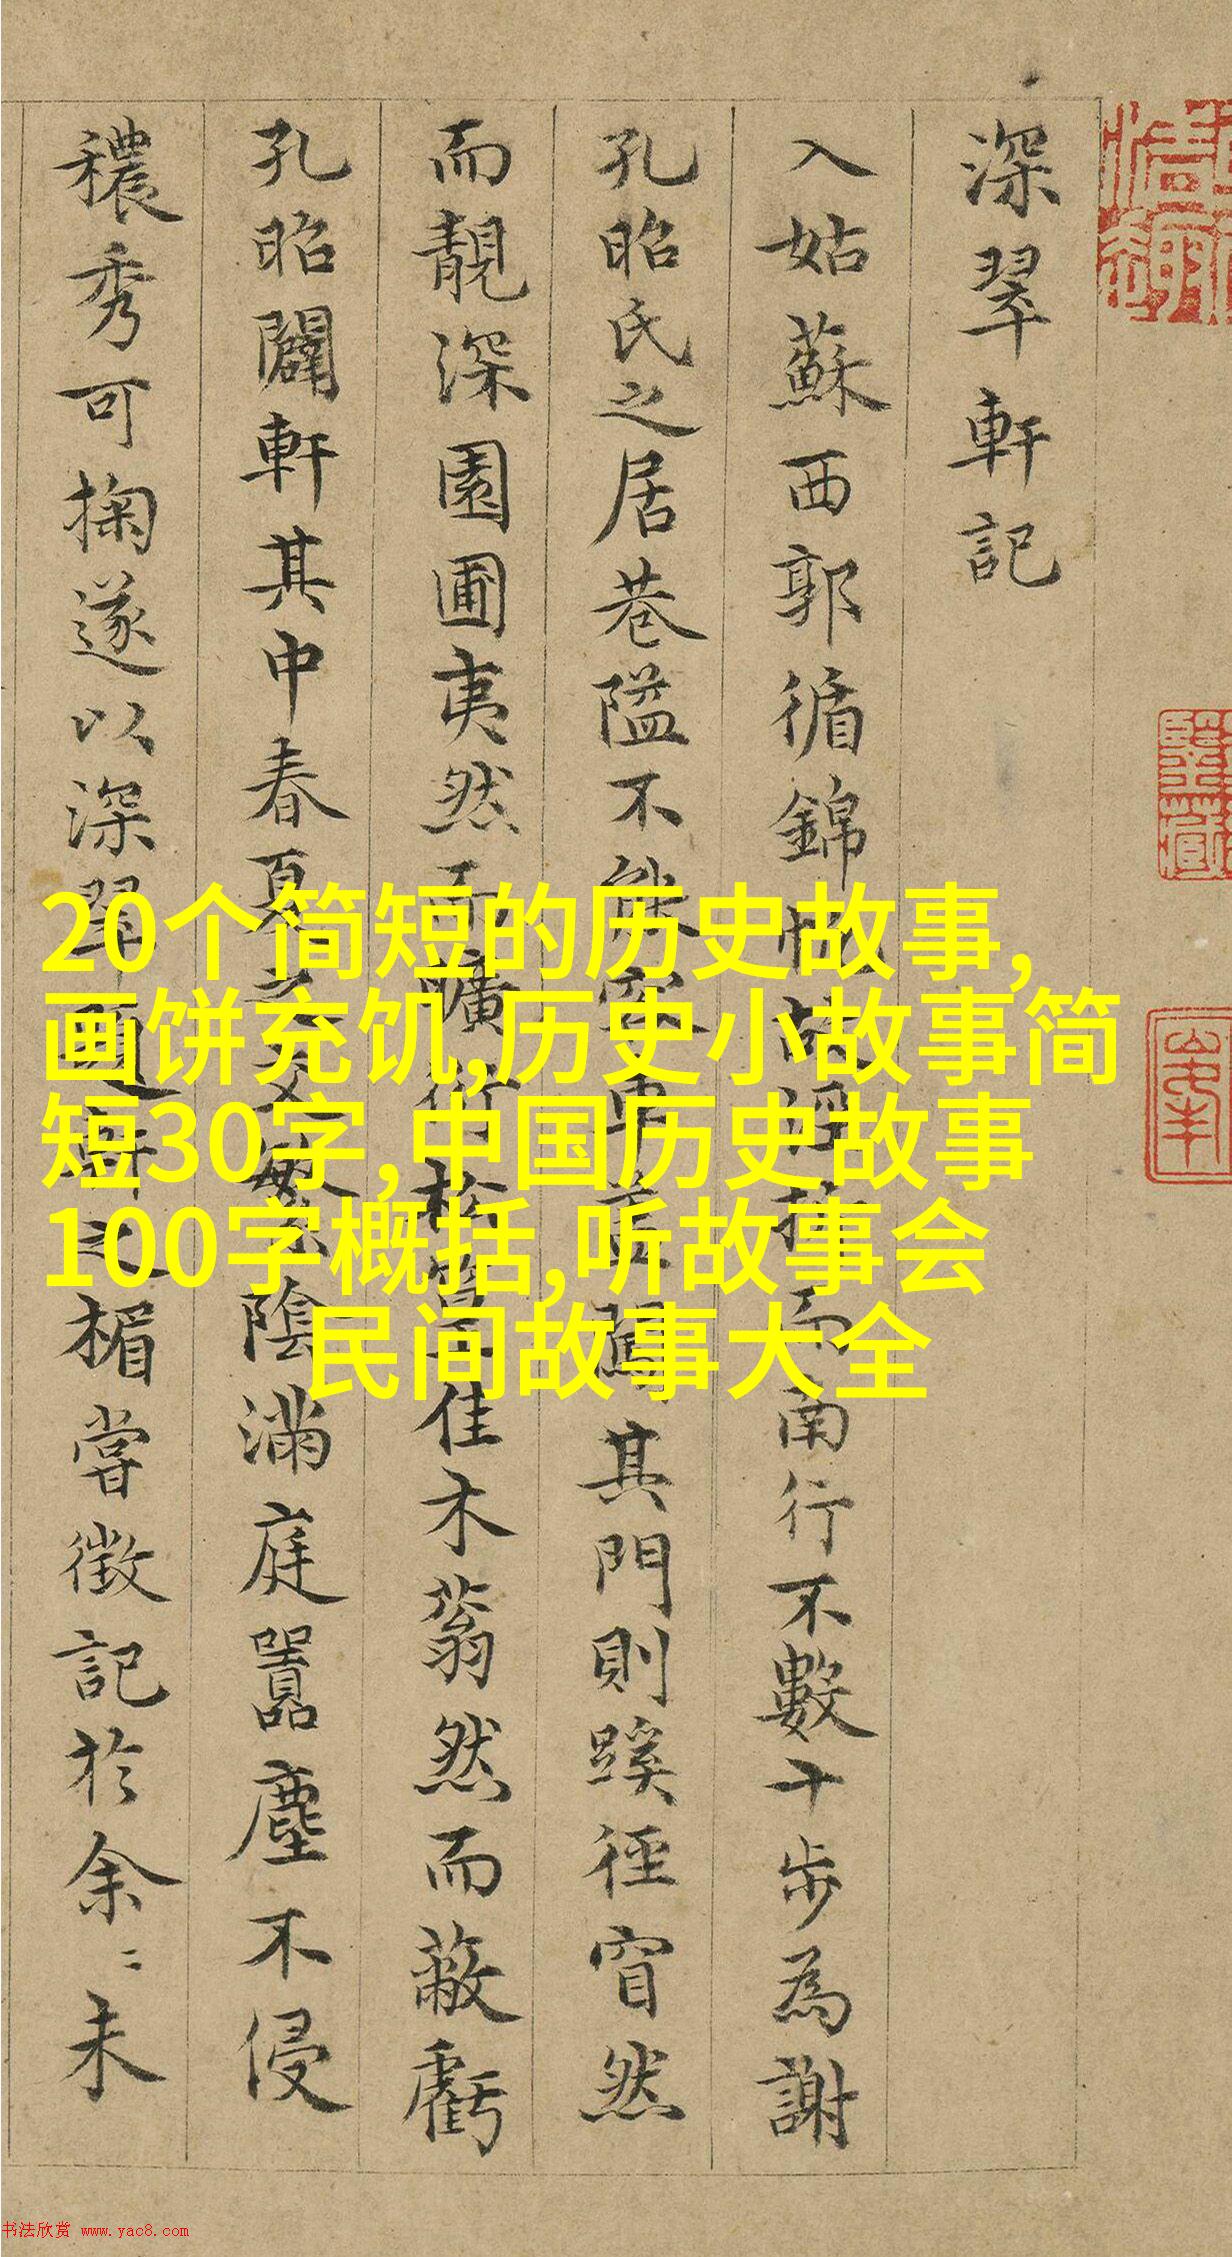 深翠軒記
入姑蘇西郭循錦帆故涇折而南行不數十步為謝
孔昭氏之居巷隘不能容車蓋闖其門則蹊徑窅然
而靚深園圃夷然而曠衍松篁佳木蓊然而蔽虧
孔昭闢軒其中春夏之交繁陰滿庭囂塵不侵
穠秀可掬遂以深翠題軒之楣嘗徵記於余〻未
20个简短的历史故事,
画饼充饥,历史小故事简
短30字,中国历史故事
100字概括,听故事会
民间故事大全
书法欣赏 www.yac8.com